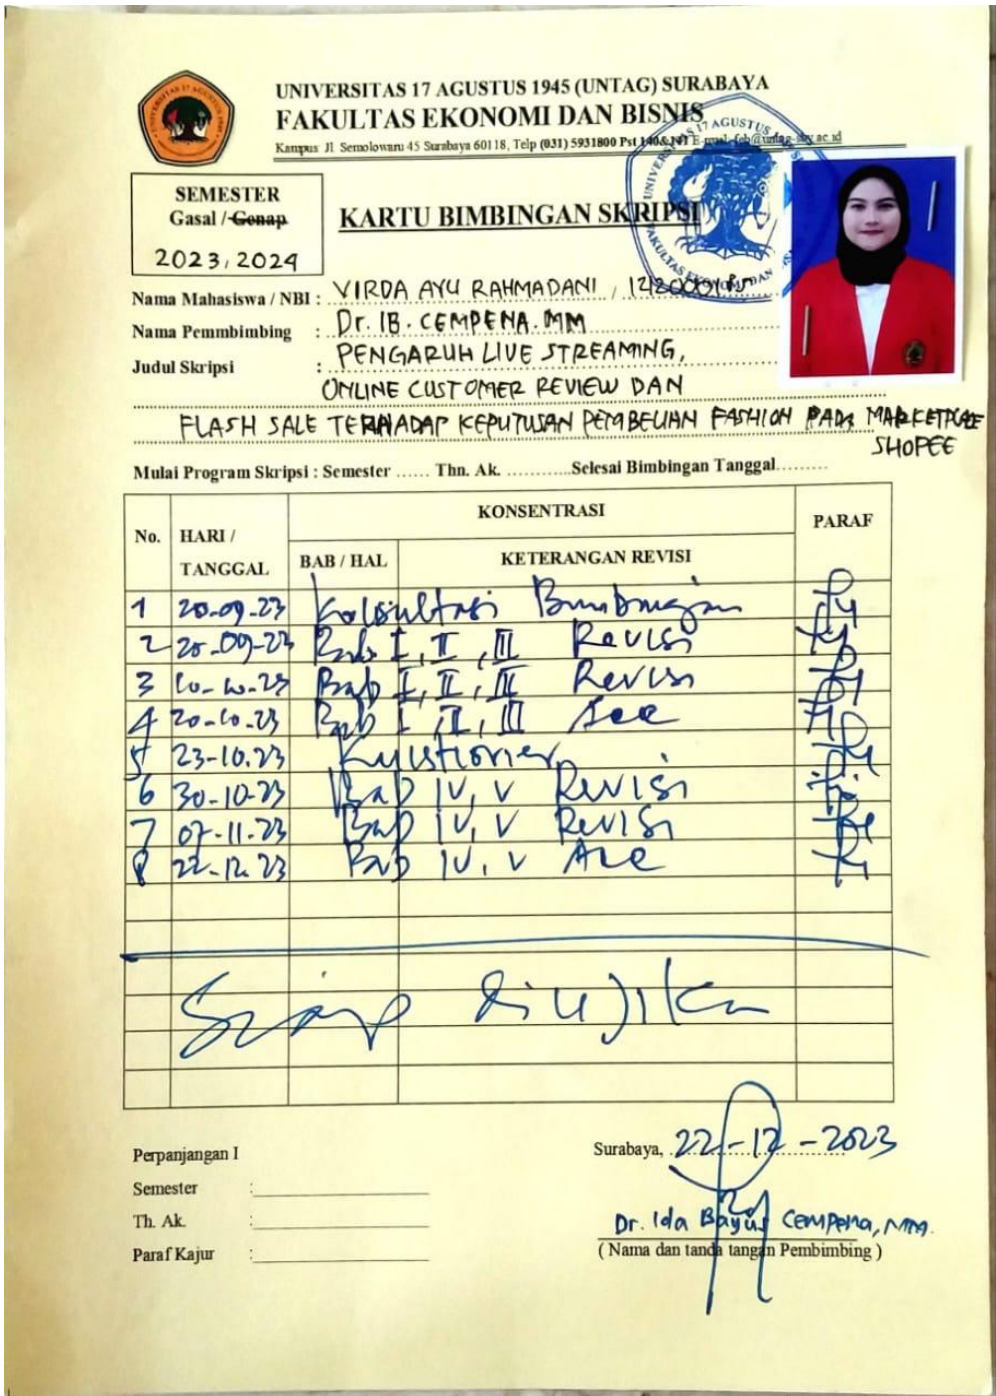 UNIVERSITAS 17 AGUSTUS 1945 (UNTAG) SURABAYA
FAKULTAS EKONOMI DAN BISNIS
Kampus Jl Semolowaru 45 Surabaya 60118, Telp (031) 5931800 Pst 140&
SEMESTER
Gasal / Genap
2023/2024
KARTU BIMBINGAN SKRIPSI
Nama Mahasiswa / NBI : VIRDA AYU RAHMADANI ,
Nama Pemmbimbing : Dr. IB. CEMPENA.MM
Judul Skripsi : PENGARUH LIVE STREAMING,
ONLINE CUSTOMER REVIEW DAN
FLASH SALE TERHADAP KEPUTUSAN PEMBELIAN FASHION PADA MARKETPLACE
SHOPEE
Mulai Program Skripsi : Semester ...... Thn. Ak. ...........Selesai Bimbingan Tanggal.........
No. HARI / TANGGAL KONSENTRASI PARAF
BAB / HAL KETERANGAN REVISI
1 20-09-23 Konsultasi Bimbingan
2 -09-23 Bab I, II, III Revisi
3 10-10-23 Bab I, II, III Revisi
4 20-10-23 Bab I, II, III Acc
5 23-10.23 Kuistioner
6 30-10-23 Bab IV, V Revisi
7 07-11-23 Bab IV, V Revisi
8 22-12.23 Bab IV, V Acc
Siap diujikan
Perpanjangan I
Semester :
Th. Ak. :
Paraf Kajur :
Surabaya, 22-12-2023
Dr. Ida Bagus Cempena, MM.
( Nama dan tanda tangan Pembimbing )